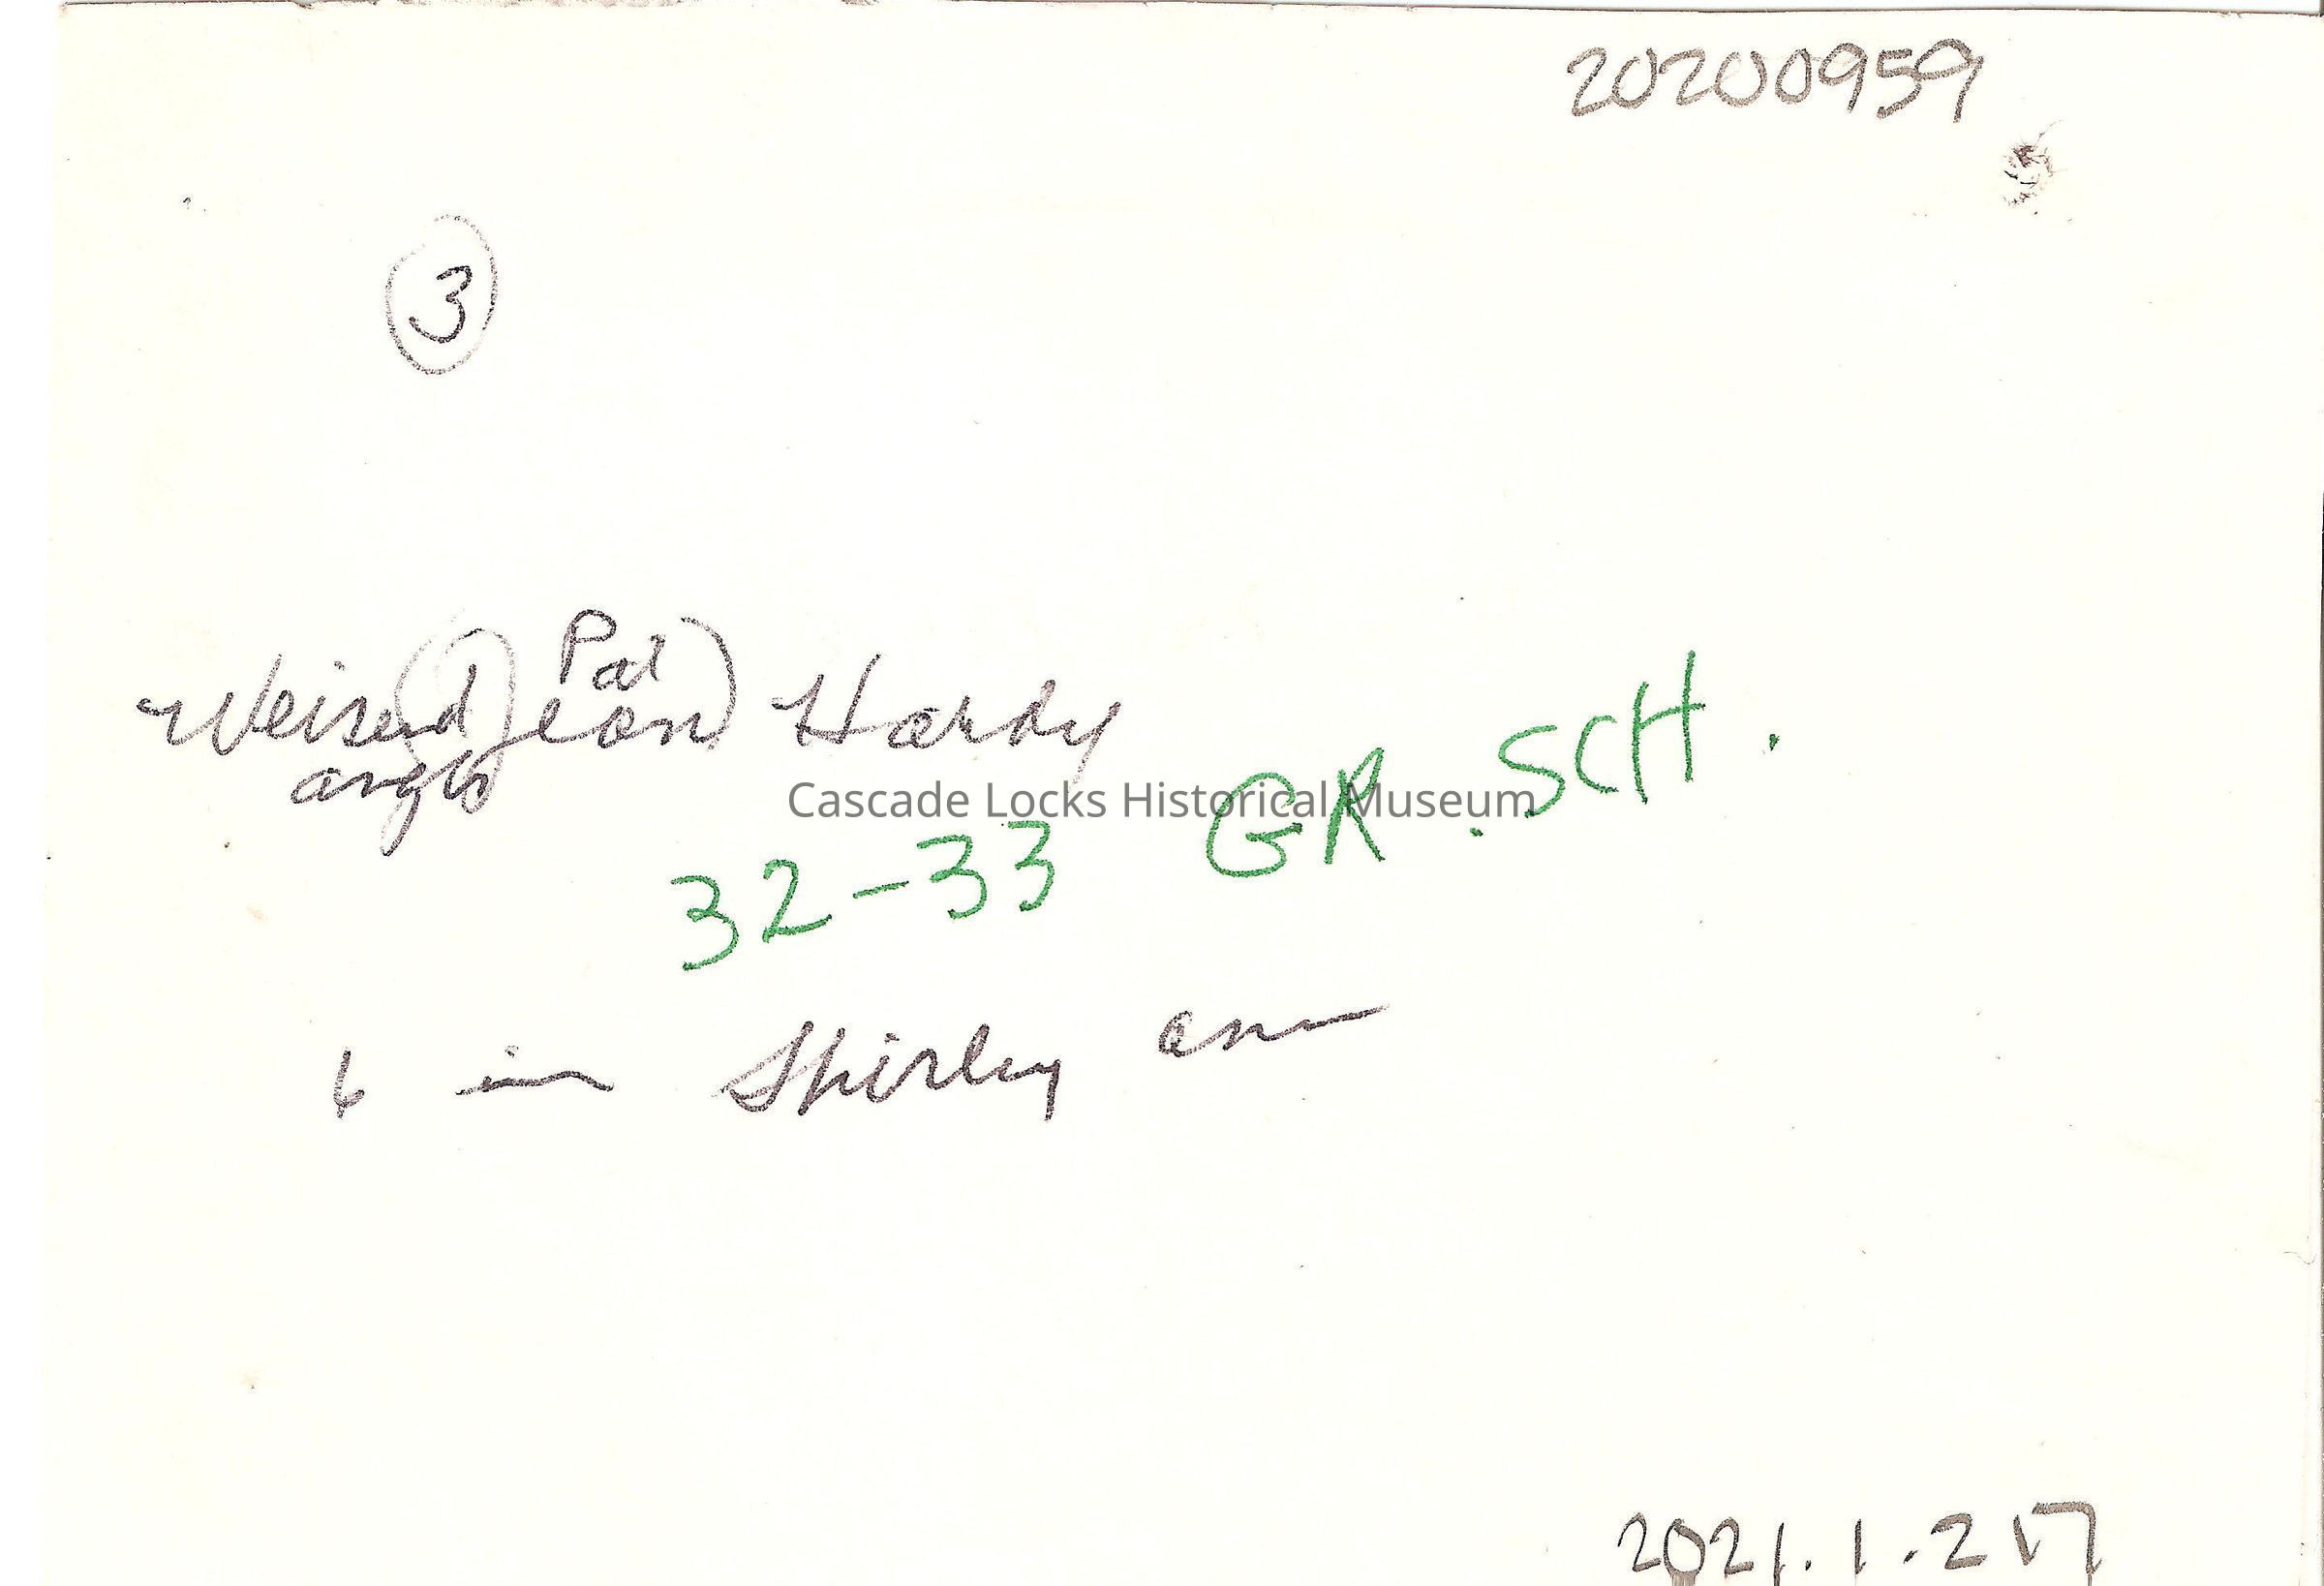 20200959
3
Pat
Jean) Hardy
Cascade Locks Historical Museum
32-33 GR. SCH.
6 in Shirley ann
2021.1.217